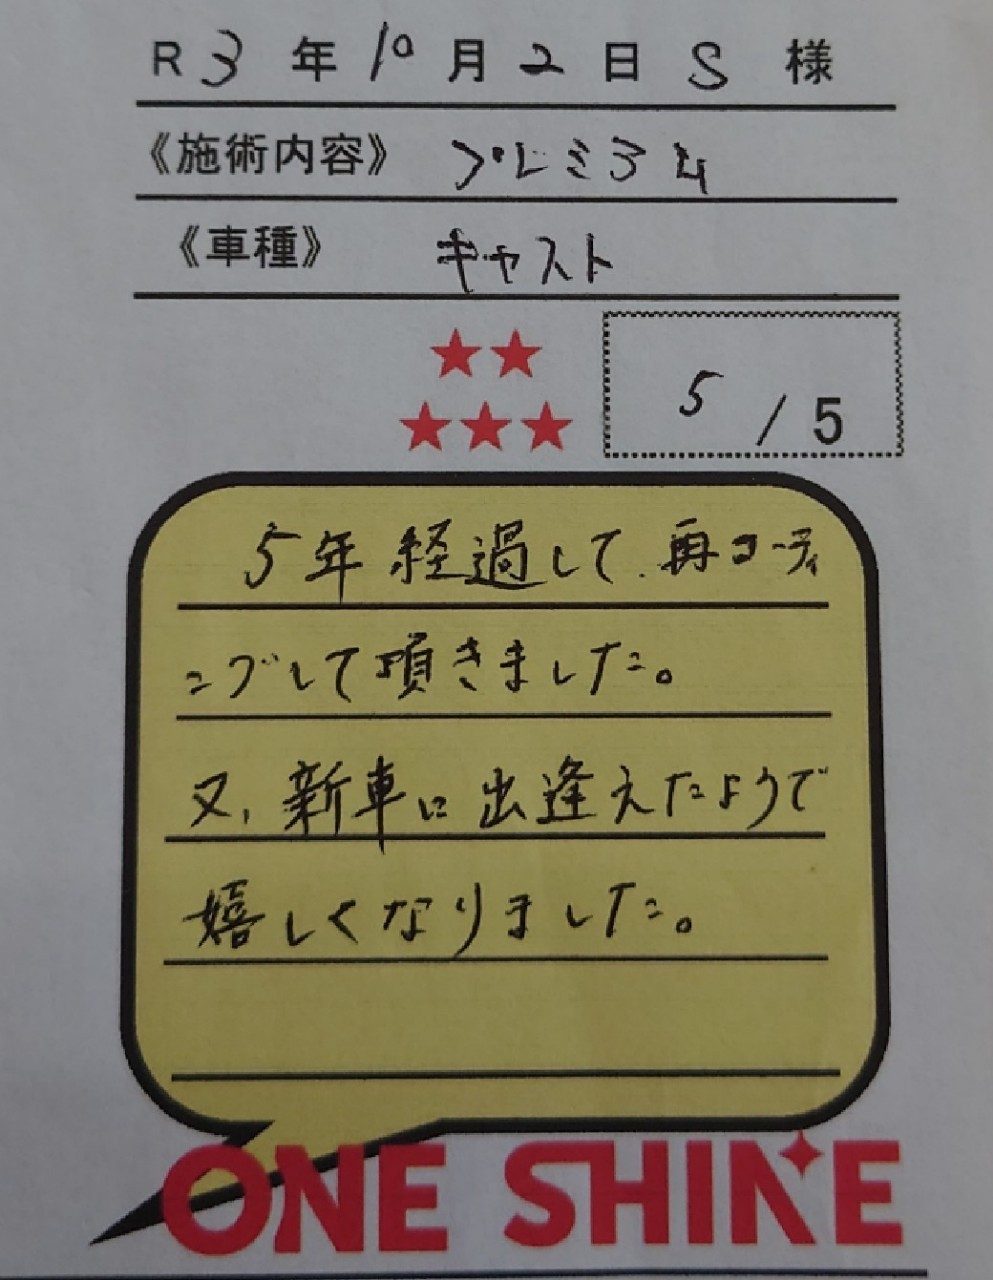 R 3 年 10 月 2 日 S 様
《施術内容》 プレミアム
《車種》 キャスト
5 / 5
5年経過して、再コーティ
ングして頂きました。
又、新車に出逢えたようで
嬉しくなりました。
ONE SHINE